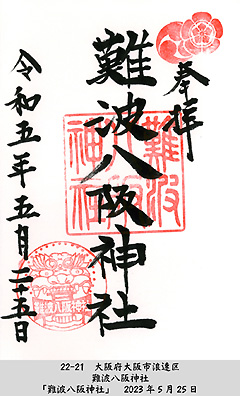 奉拝
難波八阪神社
難波八阪神社
令和五年五月二十五日
難波八阪神社
22-21 大阪府大阪市浪速区
難波八阪神社
「難波八阪神社」 2023年5月25日